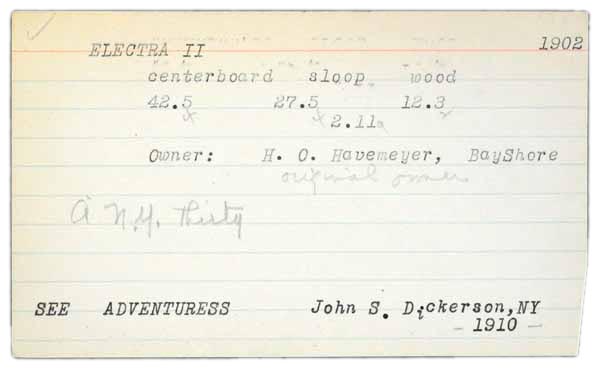 ELECTRA II 1902
centerboard sloop wood
42.5 27.5 12.3
2.11
Owner: H. O. Havemeyer, BayShore
original owner
A N.Y. Thirty
SEE ADVENTURESS John S. Dickerson,NY
- 1910 -